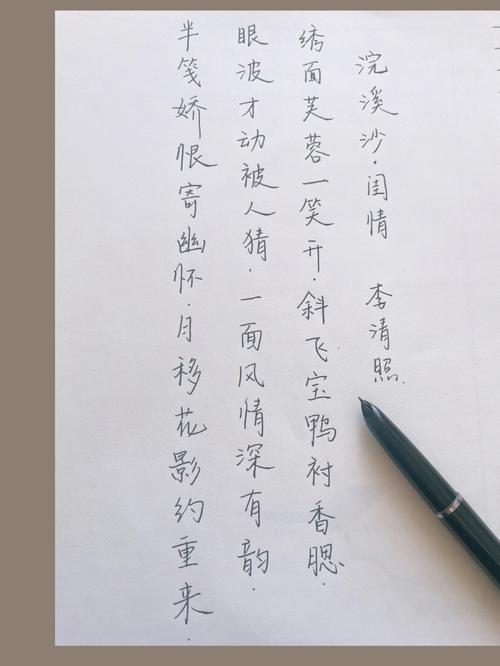 浣溪沙·闺情 李清照.
绣面芙蓉一笑开.斜飞宝鸭衬香腮.
眼波才动被人猜.一面风情深有韵.
半笺娇恨寄幽怀.月移花影约重来.